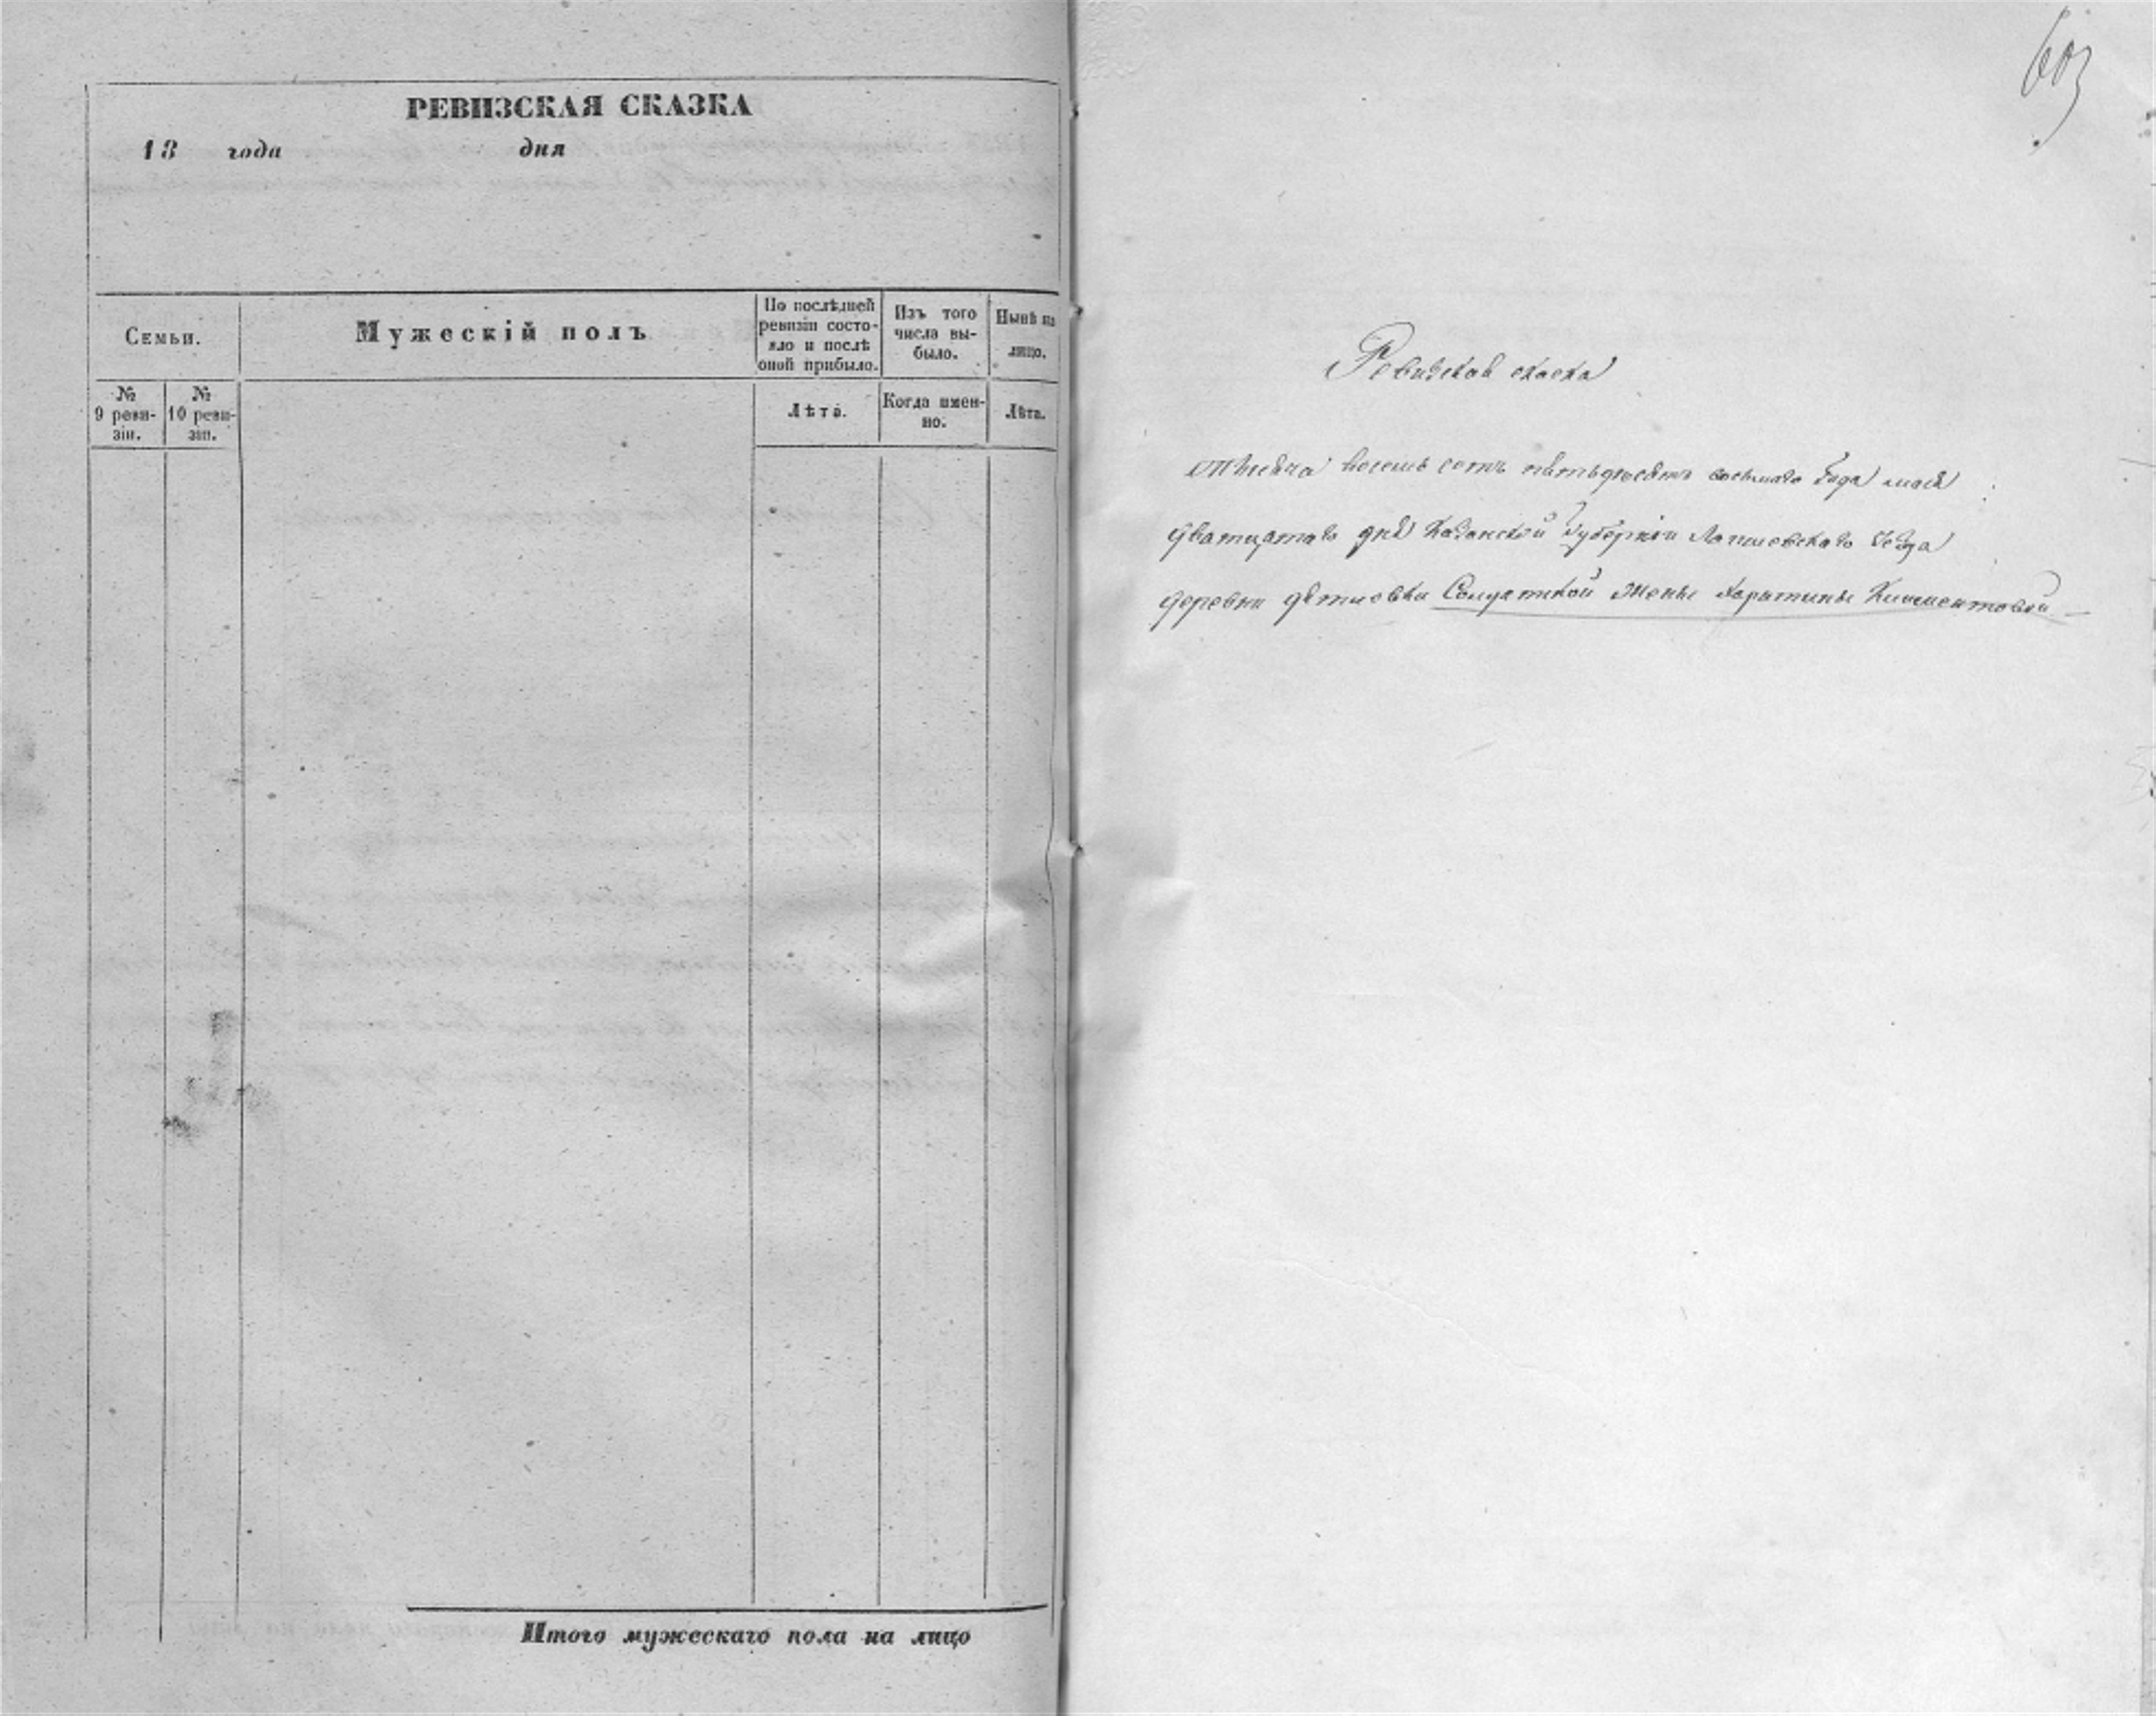 РЕВИЗСКАЯ СКАЗКА
18 года дня
Семьи.
Мужескій полъ
По послѣдней
ревизіи состо-
яло и послѣ
оной прибыло.
Изъ того
числа вы-
было.
Нынѣ на
лицо.
№
9 реви-
зіи.
№
10 реви-
зіи.
Лѣта.
Когда имен-
но.
Лѣта.
Итого мужескаго пола на лицо
603
Ревизская скаска
восемь сотъ пятьдесятъ восьмаго года мая
дватцатаго дня Казанской Губерніи Лаишевскаго уезда
деревни Солдатской жены Харитины Климентовой